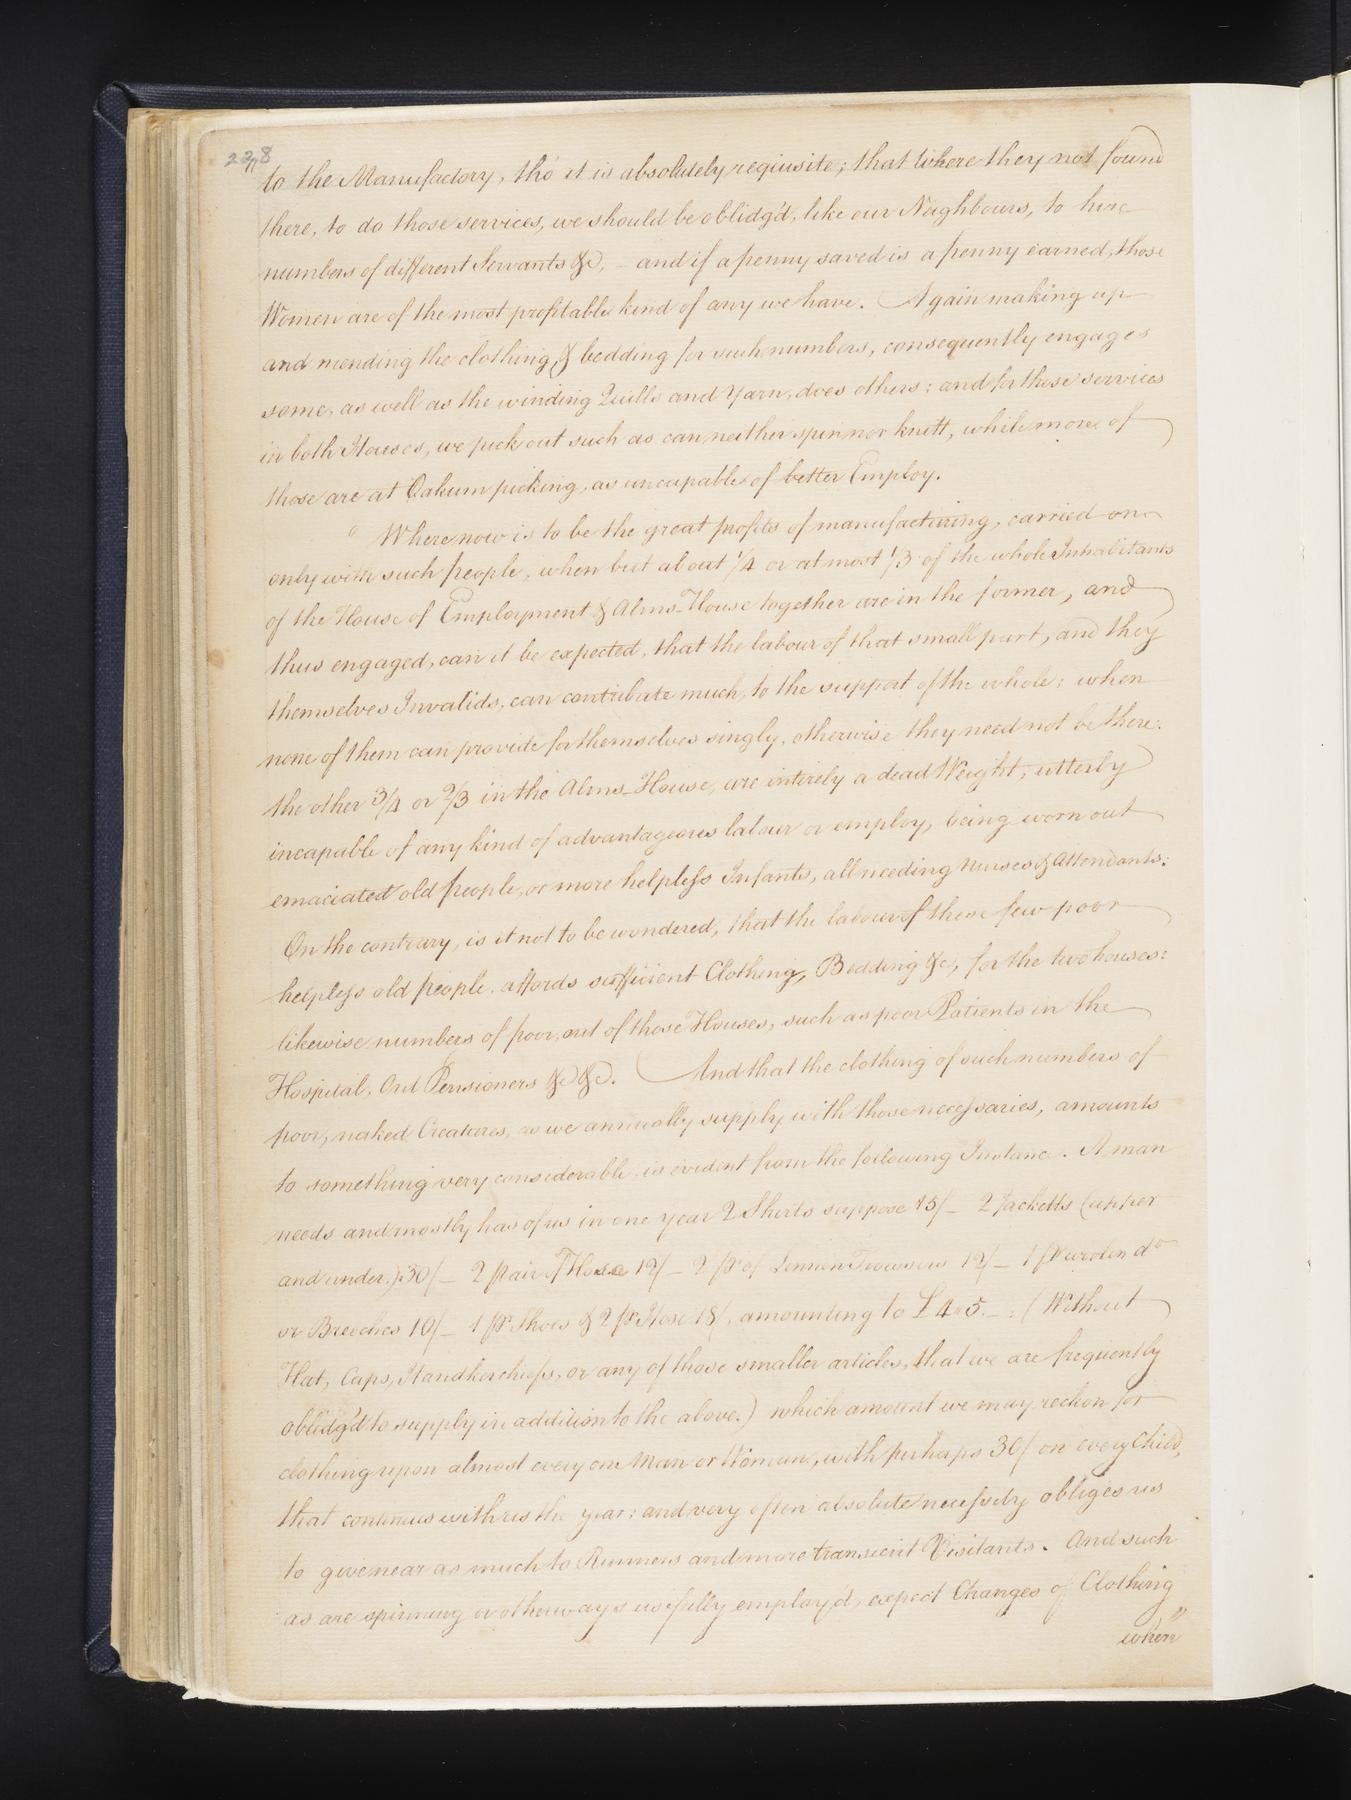 228
to the Manufactory, tho' it is absolutely reqiusite; that where they not found
there, to do those services, we should be oblidg'd, like our Neighbours, to hire
numbers of different Servants &c, – and if a penny saved is a penny earned, those
Women are of the most profitable kind of any we have. Again making up
and mending the clothing & bedding for such numbers, consequently engages
some, as well as the winding Quills and Yarn, does others; and for these services
in both Houses, we pick out such as can neither spin nor knitt, while more of
those are at Oakum picking, as uncapable of better Employ.
" Where now is to be the great profits of manufacturing, carried on
only with such people, when but about 1/4 or at most 1/3 of the whole Inhabitants
of the House of Employment & Alms-House together are in the former, and
thus engaged, can it be expected, that the labour of that small part, and they
themselves Invalids, can contribute much, to the support of the whole; when
none of them can provide for themselves singly, otherwise they need not be there:
the other 3/4 or 2/3 in the Alms-House, are entirely a dead Weight, utterly
incapable of any kind of advantageous labour or employ, being worn out
emaciated old people, or more helpless Infants, all needing Nurses & Attendants;
On the contrary, is it not to be wondered, that the labour of these few poor
helpless old people, affords sufficient Clothing, Bedding &c, for the two houses:
likewise numbers of poor, out of those Houses, such as poor Patients in the
Hospital, Out Pensioners &c &c. And that the clothing of such numbers of
poor, naked Creatures, as we annually supply with those necessaries, amounts
to something very considerable, is evident from the following Instance. A man
needs and mostly has of us in one year 2 Shirts suppose 15/– 2 Jacketts (upper
and under.) 30/– 2 pair of Hose 12/– 2 pr of Linnen Trowsers 12/– 1 pr woolen do
or Breeches 10/– 1 pr Shoes & 2 pr Hose 18/, amounting to £4"5.–: (Without
Hat, Caps, Handkerchiefs, or any of those smaller articles, that we are frequently
oblidg'd to supply in addition to the above.) which amount we may reckon for
clothing upon almost every one Man or Woman, with perhaps 30/ on every Child,
that continues with us the year: and very often absolute necessity obliges us
to give near as much to Runners and more transcient Visitants. And such
as are spinning or otherways usefully employ'd, expect Changes of Clothing
when"